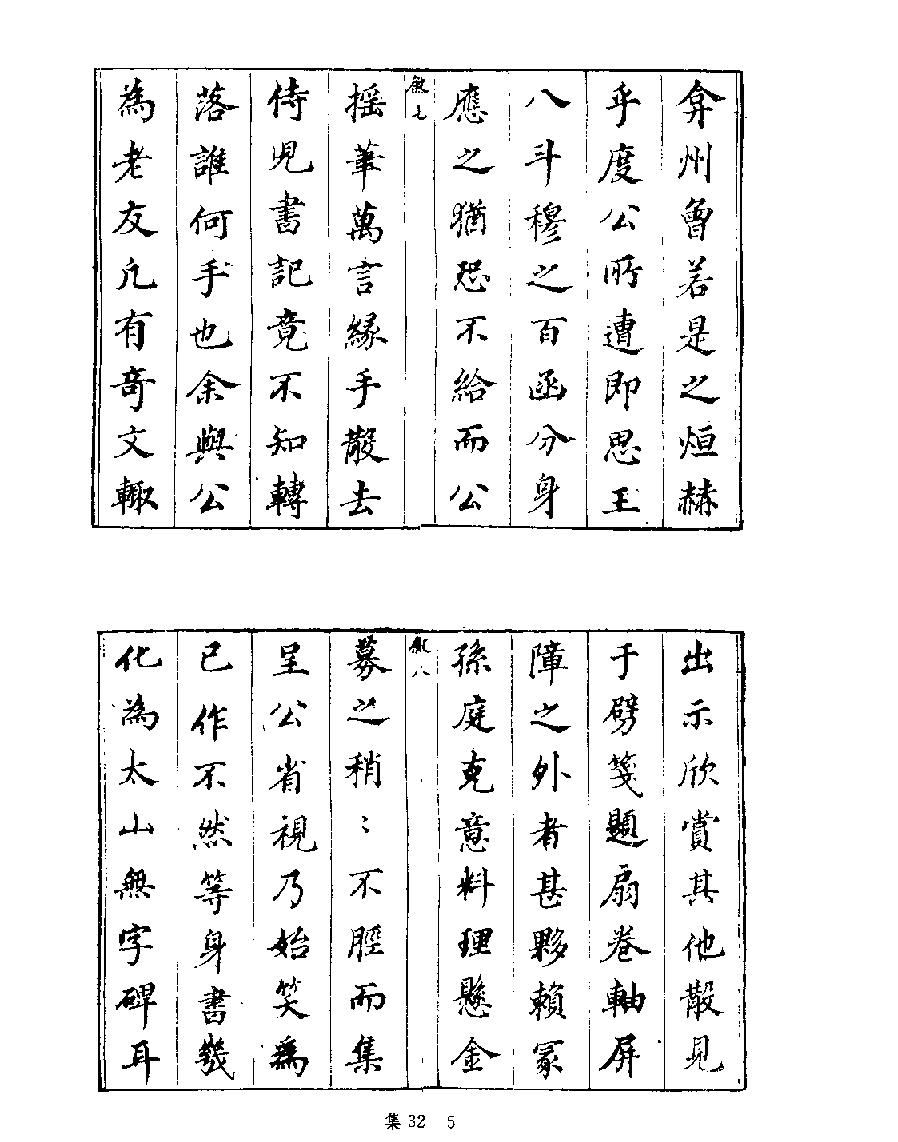 弇州曾若是之烜赫
乎度公所遭即思王
八斗穆之百函分身
應之猶恐不給而公
敘七
搖筆萬言緣手散去
侍兒書記竟不知轉
落誰何手也余與公
為老友凡有奇文輙
出示欣賞其他散見
于劈箋題扇卷軸屏
障之外者甚夥賴冡
孫庭克意料理懸金
敘八
募之稍〻不脛而集
呈公省視乃始笑為
已作不然等身書幾
化為太山無字碑耳
集 32 5